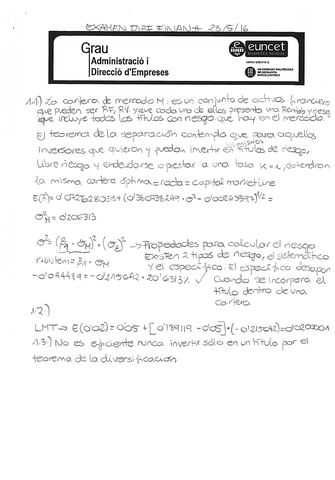 EXAMEN DIRE FINAN A 23/5/16
Grau
Administració i
Direcció d'Empreses
euncet
BUSINESS SCHOOL
UNIVERSITAT POLITÈCNICA
DE CATALUNYA
BARCELONATECH
1.1) La cartera de mercado M: es un conjunto de activos financieros
que pueden ser RF, RV y que cada uno de ellos presenta una Rentab y riesgo
que incluye todos los títulos con riesgo que hay en el mercado.
El teorema de la separación contempla que para aquellos
inversores que quieran y puedan invertir en títulos de riesgo,
libre riesgo y endeudarse o prestar a una tasa K = i, obtendrán
la misma cartera óptima = rada = capital market line
σ²M = 0'206313
σ² = (βA · σM)² · (σε)² → Propiedades para calcular el riesgo
Existen 2 tipos de riesgo, el sistemático
rsistem = βA · σM
y el específico. El específico desapar
-0'044489 = -0'215642 · 20'6313% ✓
cuando se incorpora el
título dentro de una
cartera
1.2)
LMT → E(0'02) = 0'05 + [0'189119 - 0'05] · (-0'215642) = 0'0200001
1.3.) No es eficiente nunca invertir sólo en un título por el
teorema de la diversificación